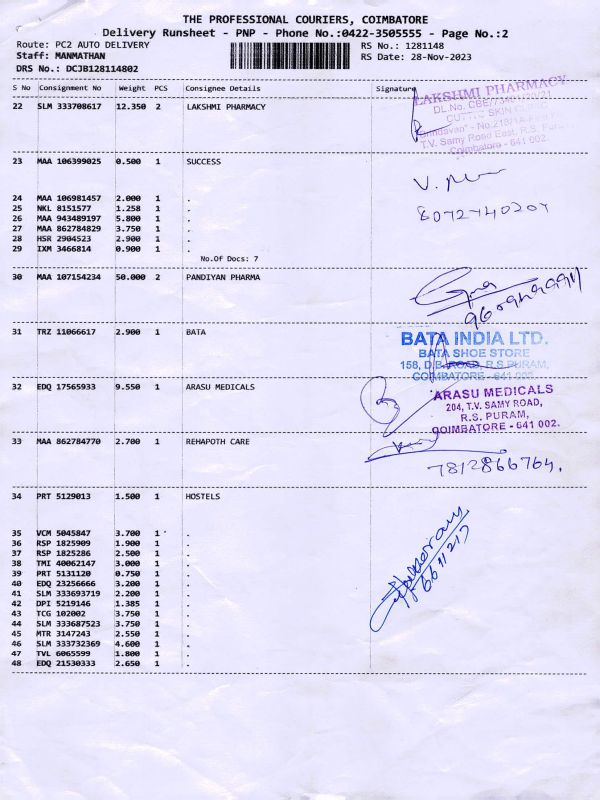 THE PROFESSIONAL COURIERS, COIMBATORE
Delivery Runsheet - PNP - Phone No.:0422-3505555 - Page No.:2
Route: PC2 AUTO DELIVERY RS No.: 1281148
Staff: MANMATHAN RS Date: 28-Nov-2023
DRS No.: DCJB128114802
S No Consignment No Weight PCS Consignee Details Signature
22 SLM 333708617 12.350 2 LAKSHMI PHARMACY
LAKSHMI PHARMACY
T.V. Samy Road East, R.S. Puram
Coimbatore - 641 002.
23 MAA 106399025 0.500 1 SUCCESS
24 MAA 106981457 2.000 1 .
25 NKL 8151577 1.258 1 .
26 MAA 943489197 5.800 1 .
27 MAA 862784829 3.750 1 .
28 HSR 2904523 2.900 1 .
29 IXM 3466814 0.900 1 .
No.Of Docs: 7
30 MAA 107154234 50.000 2 PANDIYAN PHARMA
31 TRZ 11066617 2.900 1 BATA
BATA INDIA LTD.
BATA SHOE STORE
158, D.B. ROAD, R.S PURAM,
COIMBATORE - 641 002
32 EDQ 17565933 9.550 1 ARASU MEDICALS
ARASU MEDICALS
204, T.V. SAMY ROAD,
R.S. PURAM,
COIMBATORE - 641 002.
33 MAA 862784770 2.700 1 REHAPOTH CARE
7812866764.
34 PRT 5129013 1.500 1 HOSTELS
35 VCM 5045847 3.700 1 .
36 RSP 1825909 1.900 1 .
37 RSP 1825286 2.500 1 .
38 TMI 40062147 3.000 1 .
39 PRT 5131120 0.750 1 .
40 EDQ 23256666 3.200 1 .
41 SLM 333693719 2.200 1 .
42 DPI 5219146 1.385 1 .
43 TCG 102002 3.750 1 .
44 SLM 333687523 3.750 1 .
45 MTR 3147243 2.550 1 .
46 SLM 333732369 4.600 1 .
47 TVL 6065599 1.800 1 .
48 EDQ 21530333 2.650 1 .